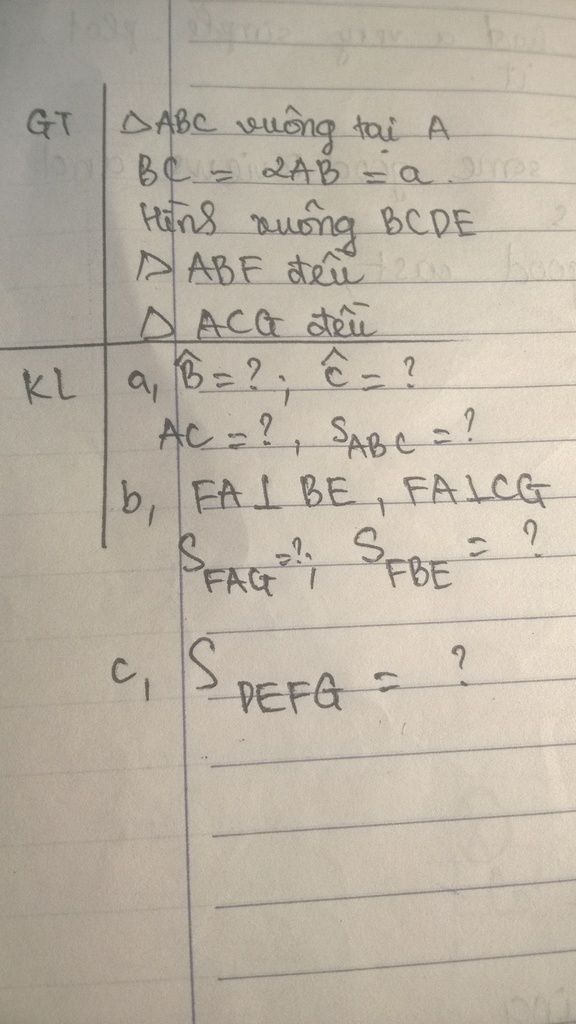 GT ΔABC vuông tại A
BC = 2AB = a.
Hình vuông BCDE
Δ ABF đều
Δ ACG đều
KL a, B̂ = ?; Ĉ = ?
AC = ?, S_ABC = ?
b, FA ⊥ BE, FA ⊥ CG
S_FAG = ?; S_FBE = ?
c, S_DEFG = ?